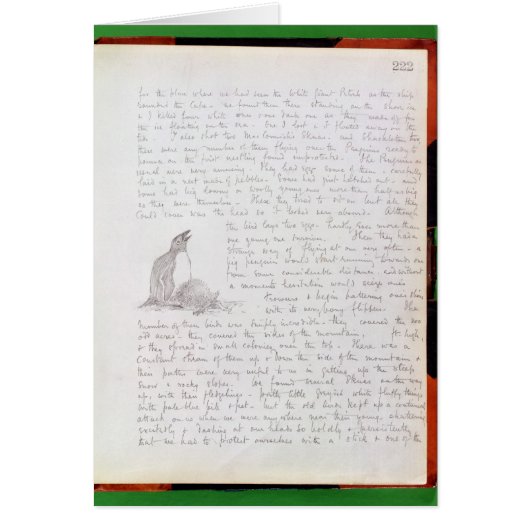 222
for the place where we had seen the White Giant Petrels as the ship
rounded the Cape - we found them there standing on the shore in
& I killed four white ones & one dark one as they made off for
the ice floating on the sea. One I shot & it floated away on the
tide. I also shot two MacCormick's Skuas - and Shackleton two
there were any number of them flying over the Penguins ready to
pounce on the first nestling found unprotected. The Penguins as
usual were very amusing. They had eggs some of them & carefully
laid in a nest made of pebbles. Some had just hatched out - and
some had big downy or woolly young ones more than half as big
as they were themselves - These they tried to sit on but all they
could cover was the head so it looked very absurd. Although
the bird lays two eggs hardly ever more than
one young one survives. Then they had a
strange way of flying at one very often - a
big penguin would start running towards one
from some considerable distance and without
a moments hesitation would seize ones
trousers & begin battering ones shins
with its very bony flippers. The
number of these birds was simply incredible - they covered the
acres - they covered the sides of the mountain,
& they spread in small colonies over the top. There was a
constant stream of them up & down the side of the mountain &
their paths were very useful to us in getting up the steep
snow & rocky slopes. We found several Skuas on the way
up, with their fledgelings - pretty little greyish white fluffy things
with pale blue bills & feet - but the old birds kept up a continual
attack on us when we were anywhere near their young, chattering
excitedly & dashing at our heads so boldly & persistently
that we had to protect ourselves with a stick & one of the